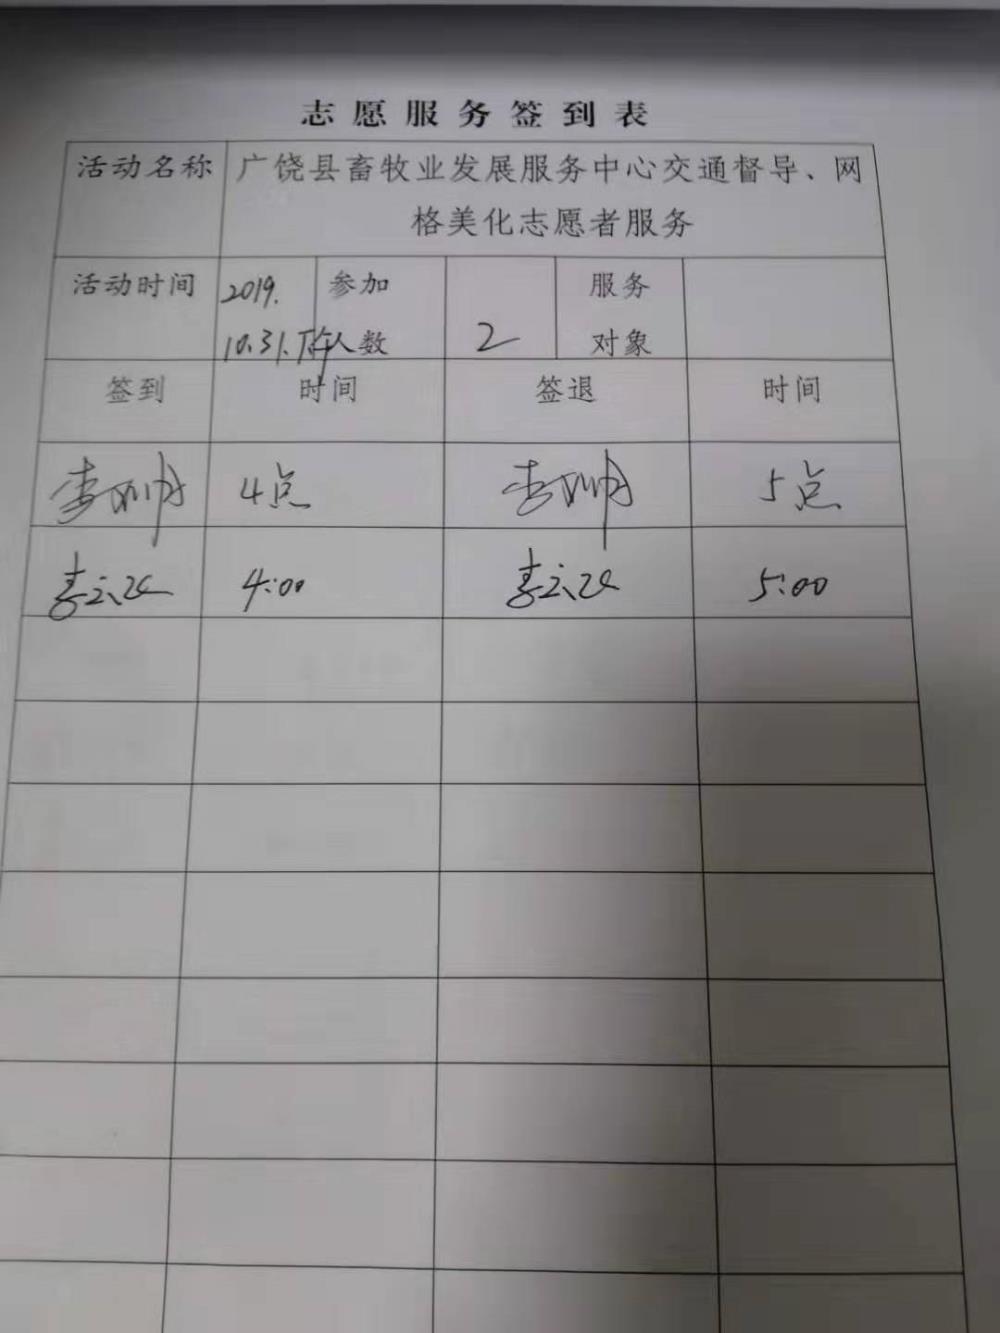 志愿服务签到表
活动名称 广饶县畜牧业发展服务中心交通督导、网
格美化志愿者服务
活动时间 2019. 参加 服务
10.31.下午 人数 2 对象
签到 时间 签退 时间
4点 5点
4:00 5:00